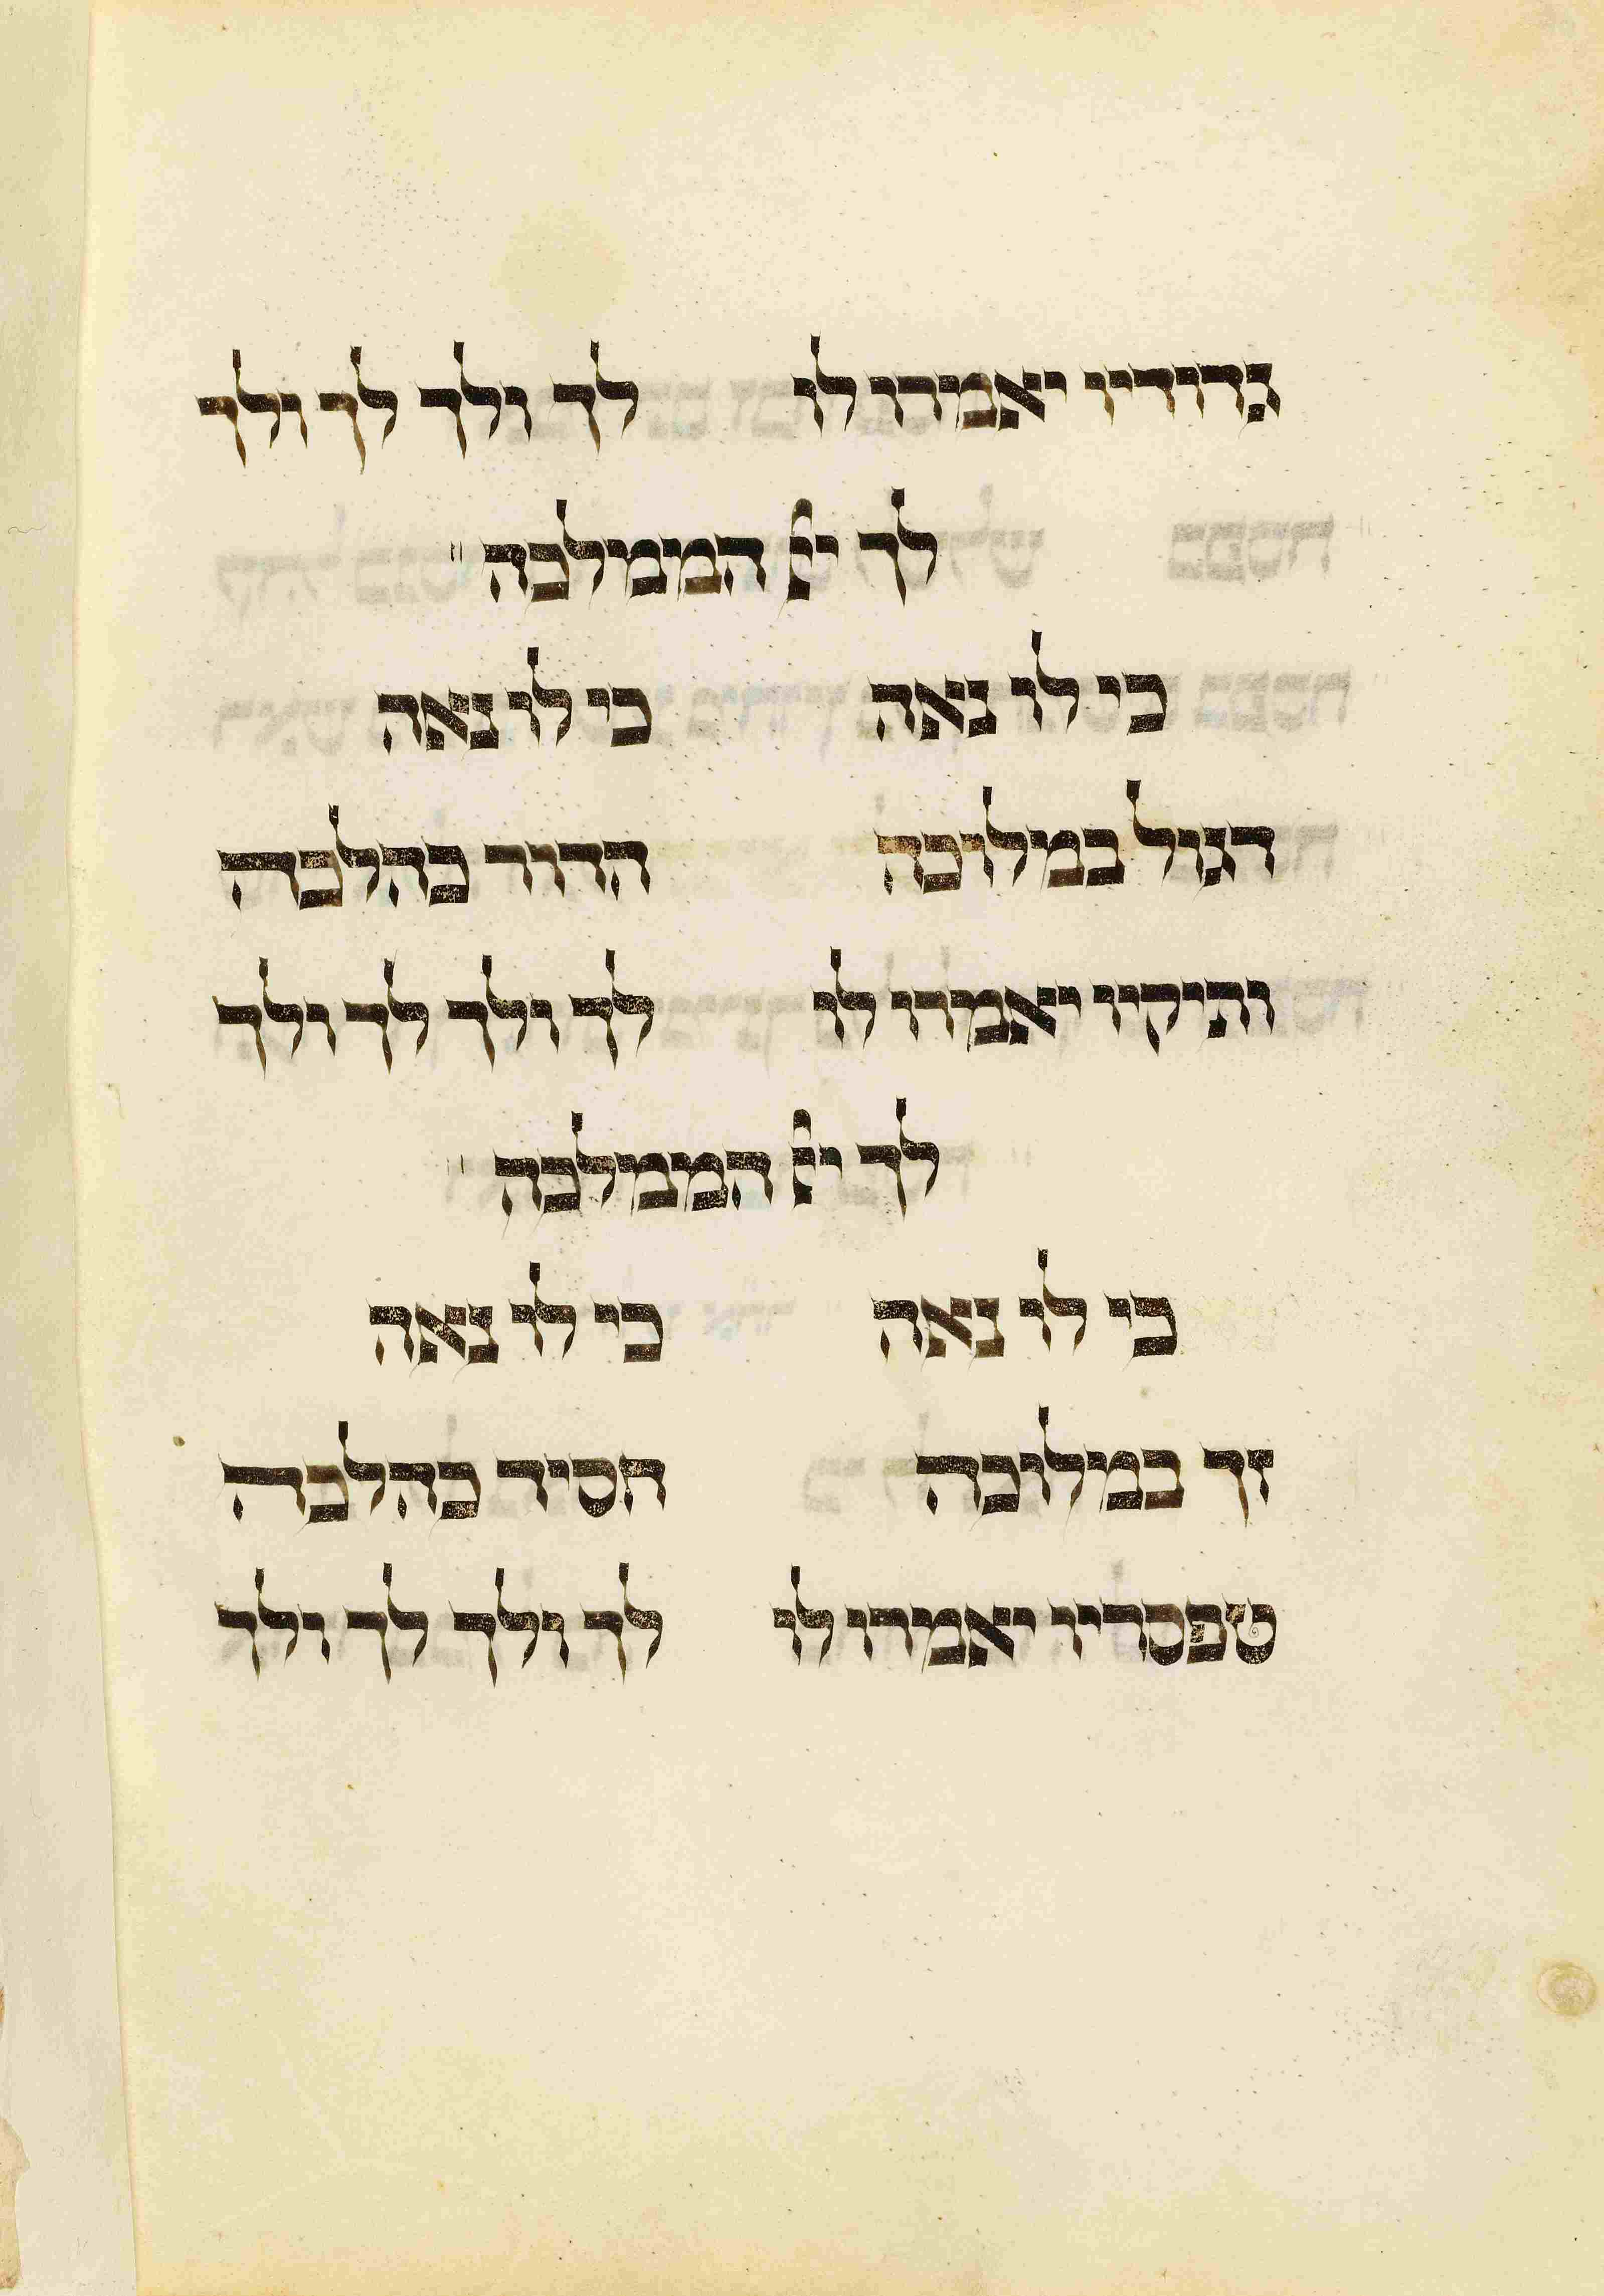 גדודיו יאמרו לו לך ולך לך ולך
לך יי׳ הממלכה
כי לו נאה כי לו נאה
דגול במלוכה הדור כהלכה
ותיקיו יאמרו לו לך ולך לך ולך
לך יי׳ הממלכה
כי לו נאה כי לו נאה
זך במלוכה חסיד כהלכה
טפסריו יאמרו לו לך ולך לך ולך